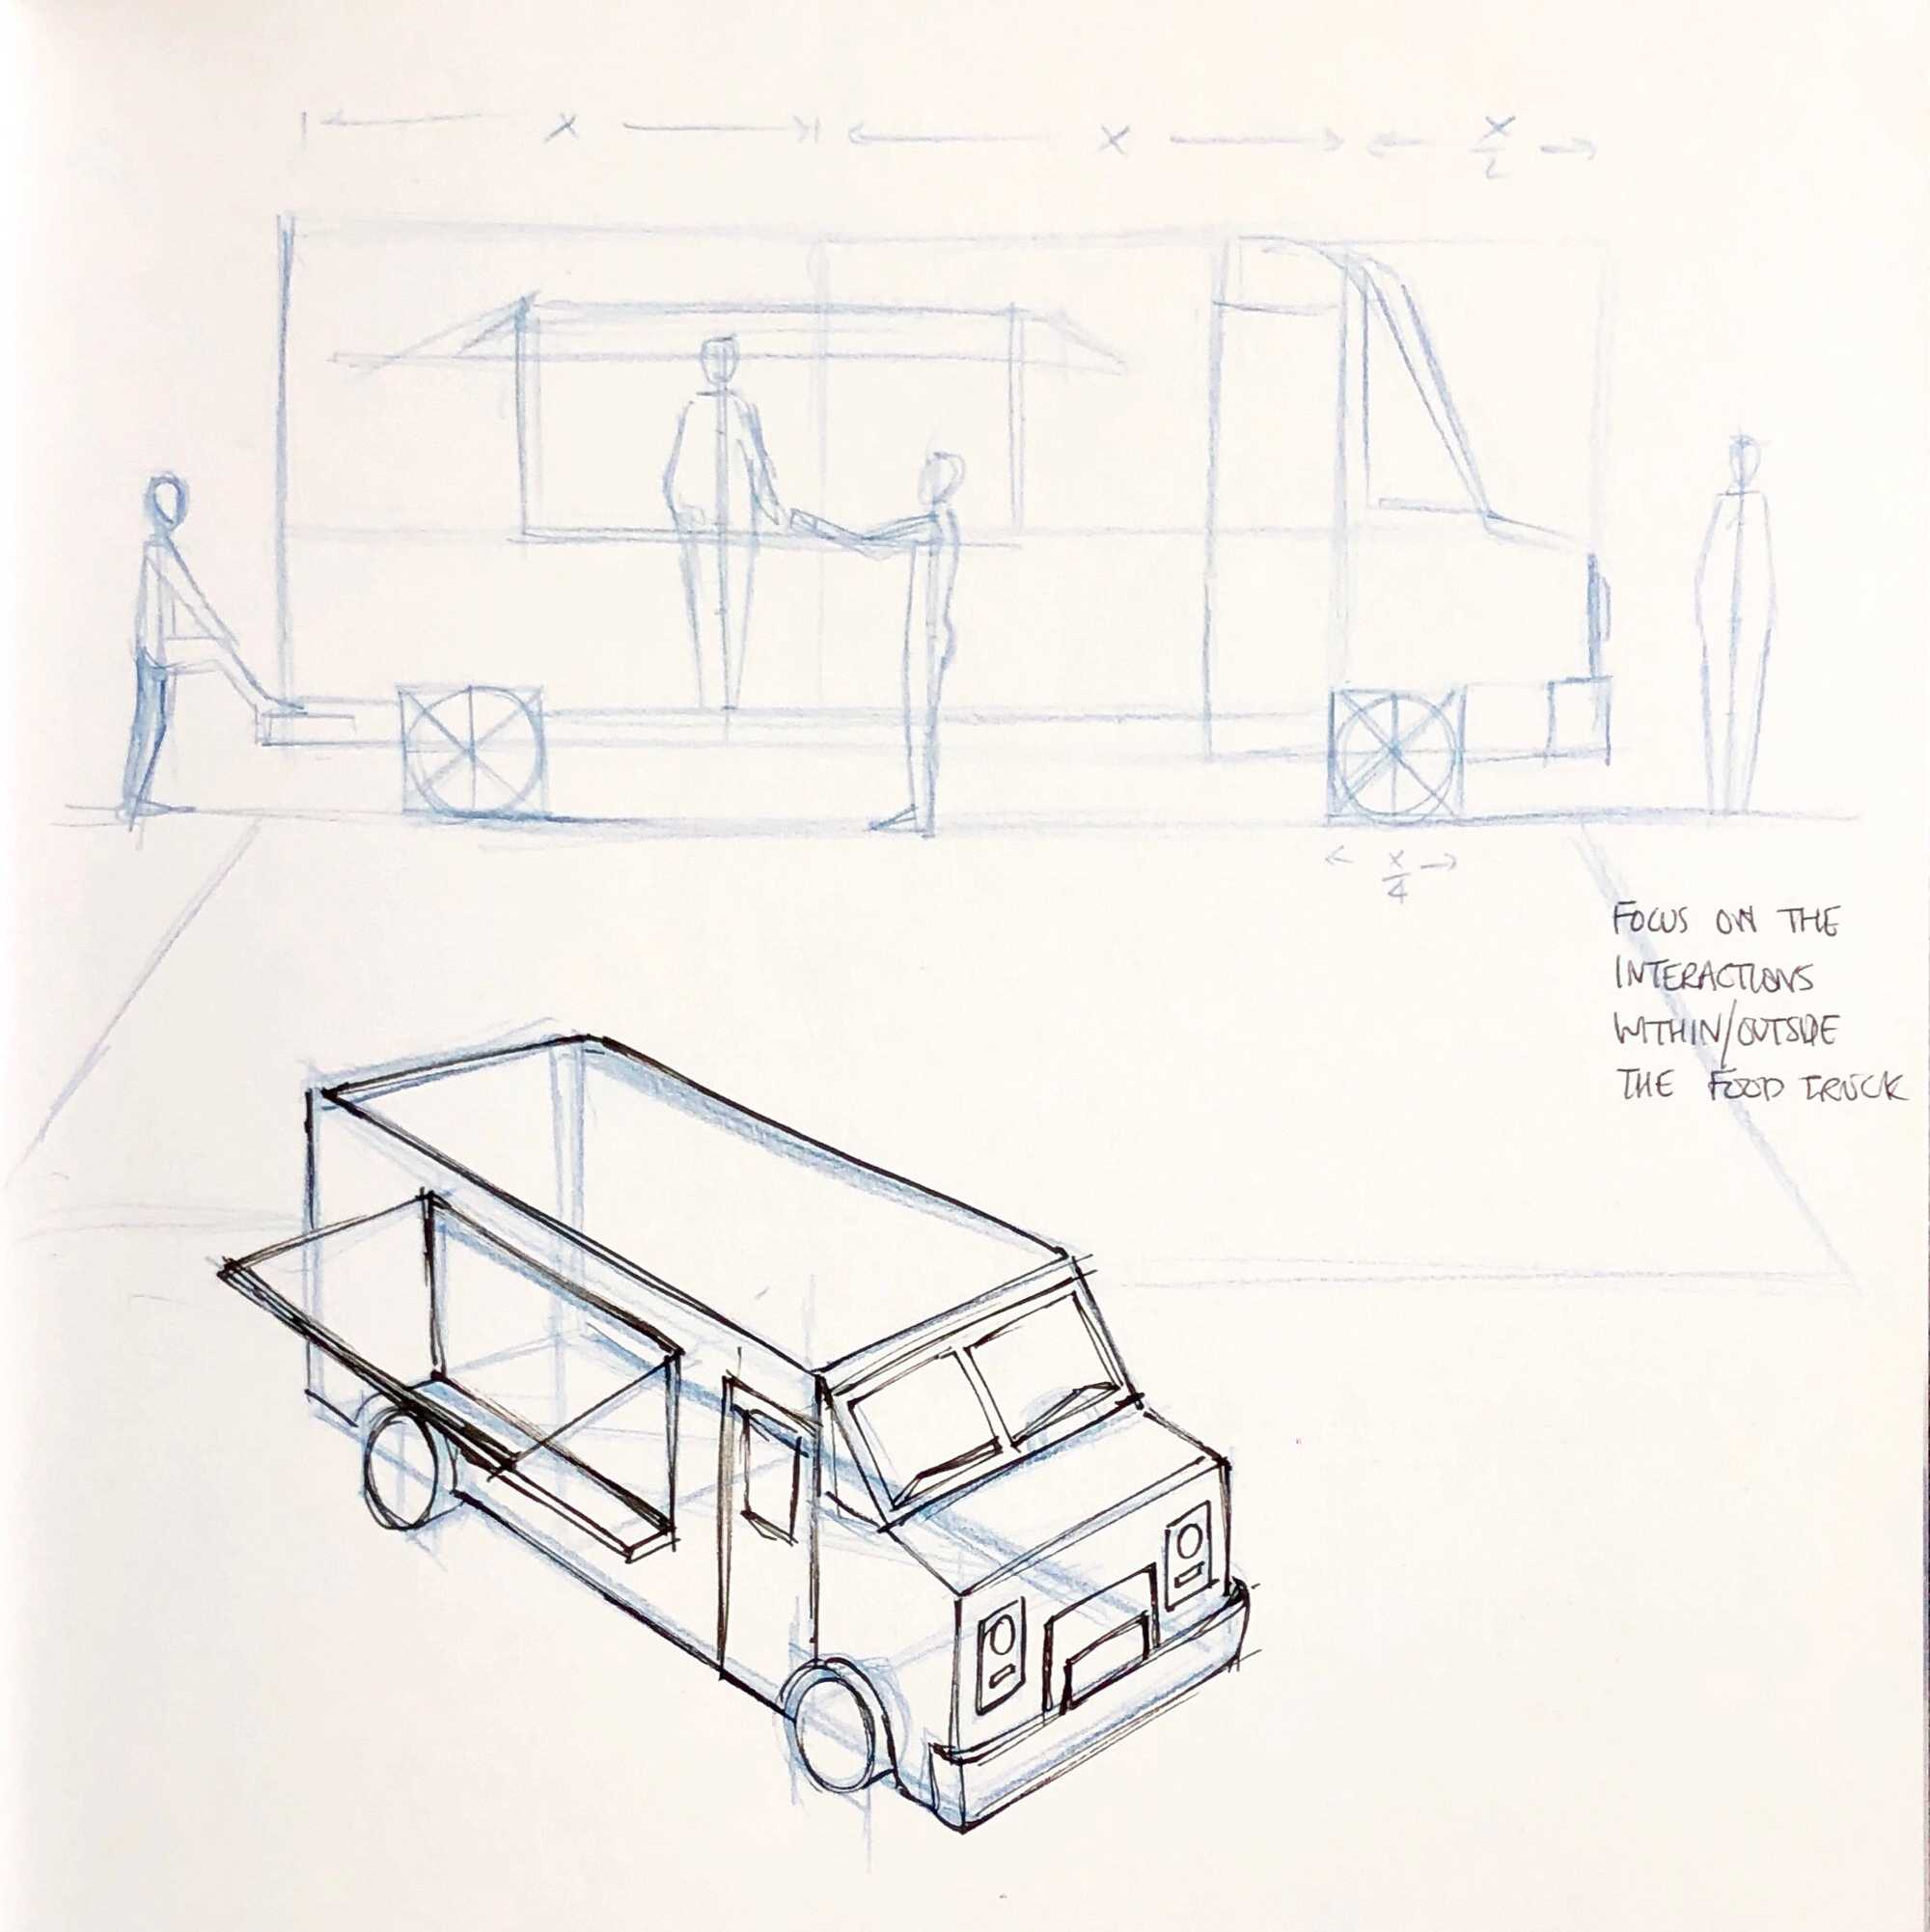 X X X/2
X/4
FOCUS ON THE
INTERACTIONS
WITHIN/OUTSIDE
THE FOOD TRUCK